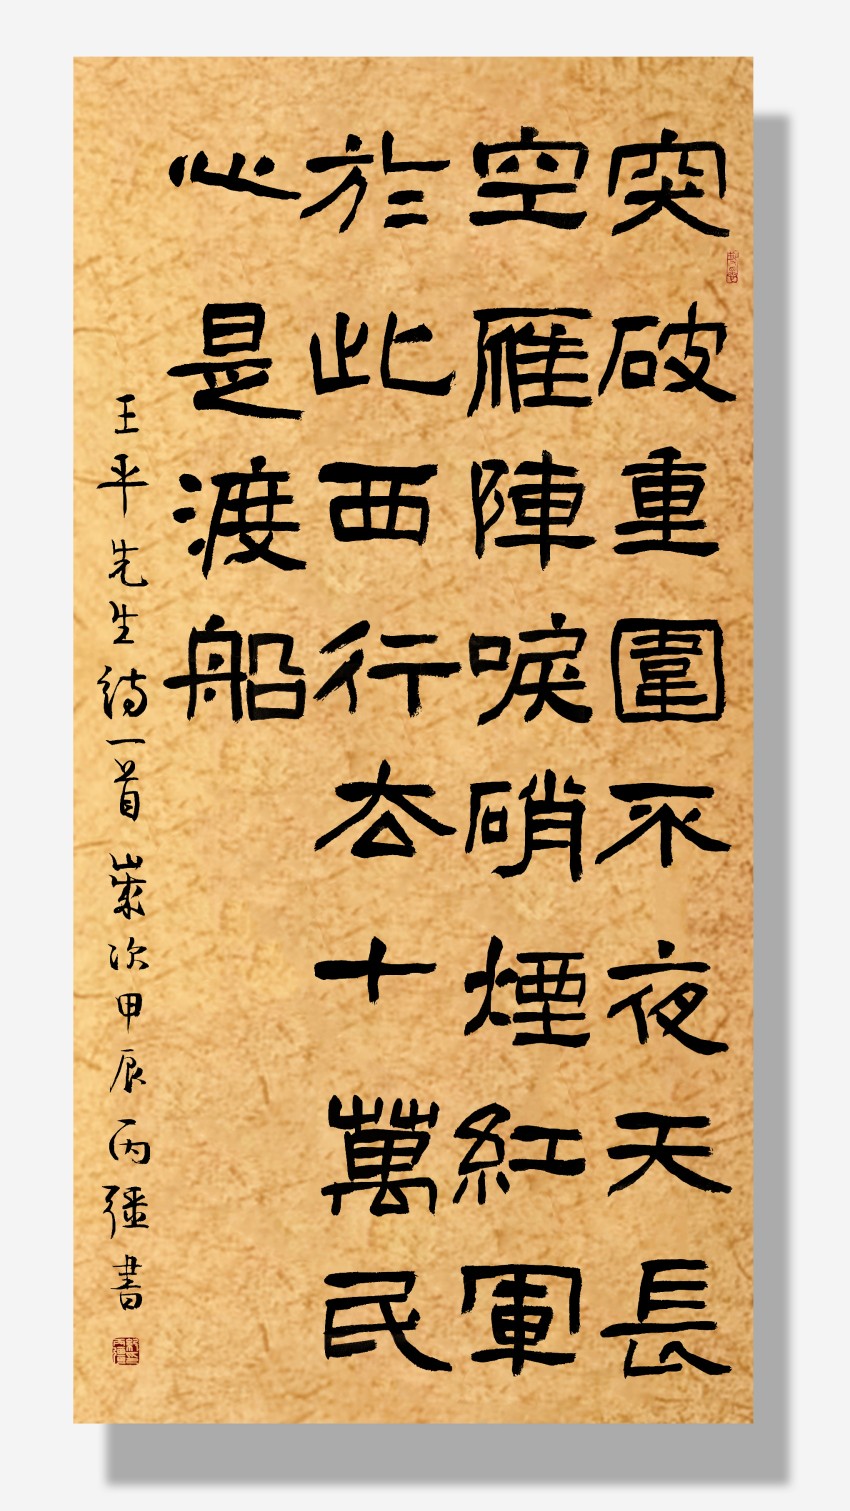 突破重圍不夜天長
空雁陣唳硝煙紅軍
於此西行去十萬民
心是渡船
王平先生詩一首 嵗次甲辰 丙彊書